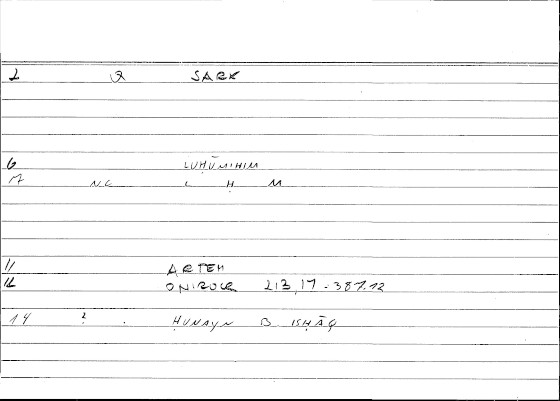 2 Q SARK
6 LUḤŪMIHIM
7 NC L Ḥ M
11 ARTEM
12 ONIROCR 213,17-387.12
14 ? . ḤUNAYN B ISḤĀQ